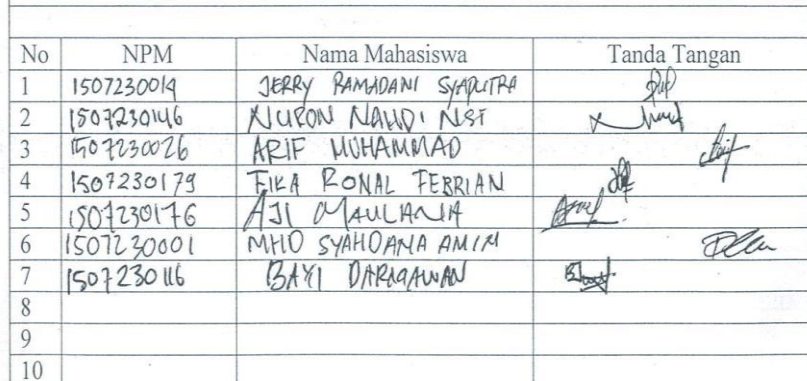 No NPM Nama Mahasiswa Tanda Tangan
1 1507230014 JERRY RAMADANI SYAPUTRA
2 1507230146 NURON NAHDI NST
3 1507230026 ARIF MUHAMMAD
4 1507230179 FIKA RONAL FEBRIAN
5 1507230176 AJI MAULANA
6 1507230001 MHD SYAHDANA AMIN
7 1507230116 BAYI
8
9
10